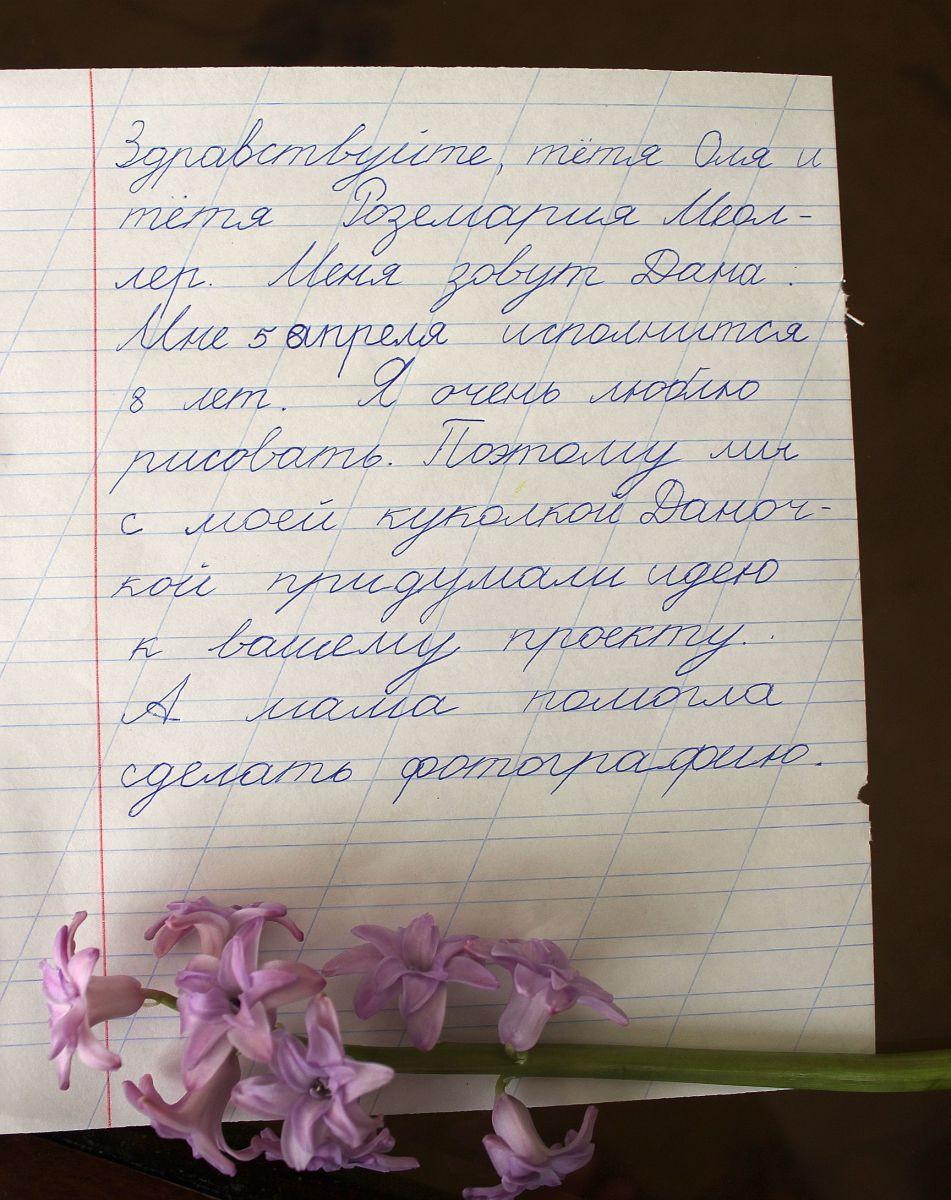 Здравствуйте, тётя Оля и
тётя Роземария Меол-
лер. Меня зовут Дана.
Мне 5 апреля исполнится
8 лет. Я очень люблю
рисовать. Поэтому мы
с моей куколкой Даноч-
кой придумали идею
к вашему проекту.
А мама помогла
сделать фотографию.